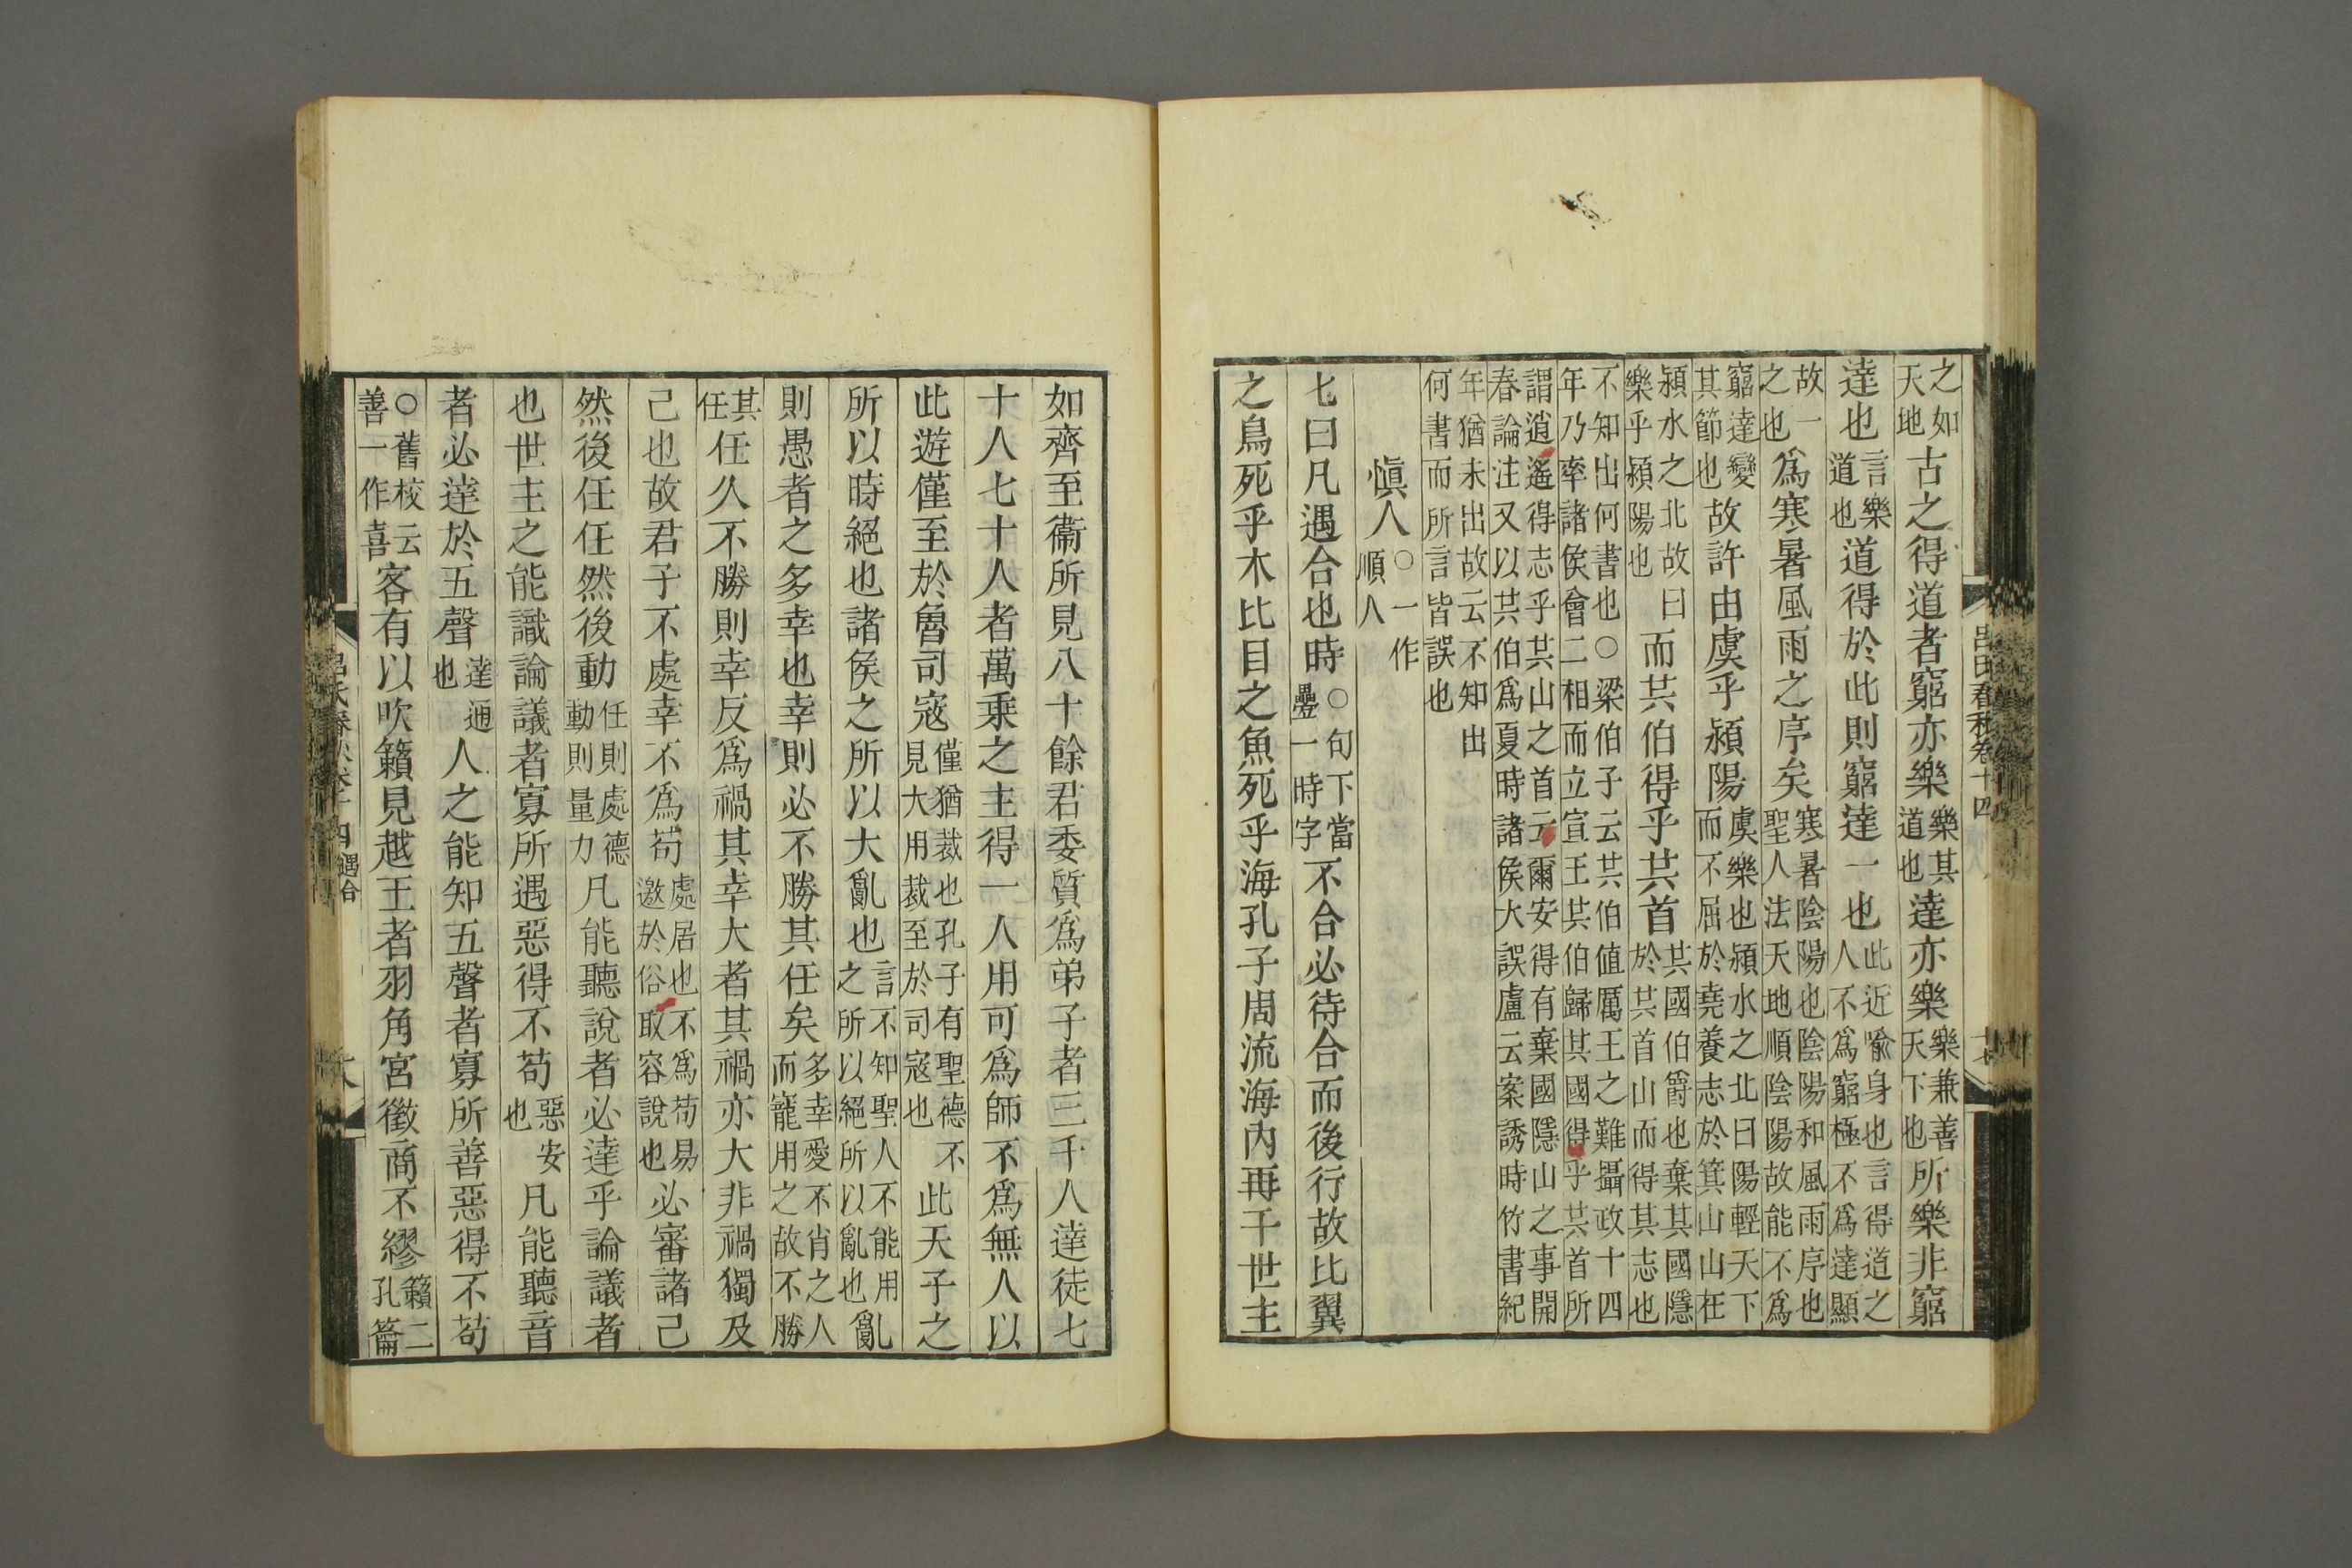 呂氏春秋卷十四
十七
之如天地古之得道者窮亦樂樂其道也達亦樂樂兼善天下也所樂非窮
達也言樂道也道得於此則窮達一也此近喻身也言得道之人不爲窮極不爲達顯
故一之也爲寒暑風雨之序矣寒暑陰陽也陰陽和風雨序也聖人法天地順陰陽故能不爲
窮達變其節也故許由虞乎潁陽虞樂也潁水之北曰陽輕天下而不屈於堯養志於箕山山在
潁水之北故曰樂乎潁陽也而共伯得乎共首共國伯爵也棄其國隱於共首山而得其志也
不知出何書也○梁伯子云共伯值厲王之難攝政十四年乃率諸侯會二相而立宣王共伯歸其國得乎共首所
謂逍遙得志乎共山之首云爾安得有棄國隱山之事開春論注又以共伯爲夏時諸侯大誤盧云案誘時竹書紀
年猶未出故云不知出何書而所言皆誤也
愼人○一作順人
七曰凡遇合也時○句下當疊一時字不合必待合而後行故比翼
之鳥死乎木比目之魚死乎海孔子周流海內再干世主
如齊至衞所見八十餘君委質爲弟子者三千人達徒七
十人七十人者萬乘之主得一人用可爲師不爲無人以
此遊僅至於魯司寇僅猶裁也孔子有聖德不見大用裁至於司寇也此天子之
所以時絕也諸侯之所以大亂也言不知聖人不能用亂之所以絕所以亂也
則愚者之多幸也幸則必不勝其任矣多幸愛不肖之人而寵用之故不勝
其任任久不勝則幸反爲禍其幸大者其禍亦大非禍獨及
己也故君子不處幸不爲苟處居也不爲苟易邀於俗取容說也必審諸己
然後任任然後動任則處德動則量力凡能聽說者必達乎論議者
也世主之能識論議者寡所遇惡得不苟惡安也凡能聽音
者必達於五聲達通也人之能知五聲者寡所善惡得不苟
○舊校云善一作喜客有以吹籟見越王者羽角宮徵商不繆籟二孔籥
呂氏春秋卷十四 遇合